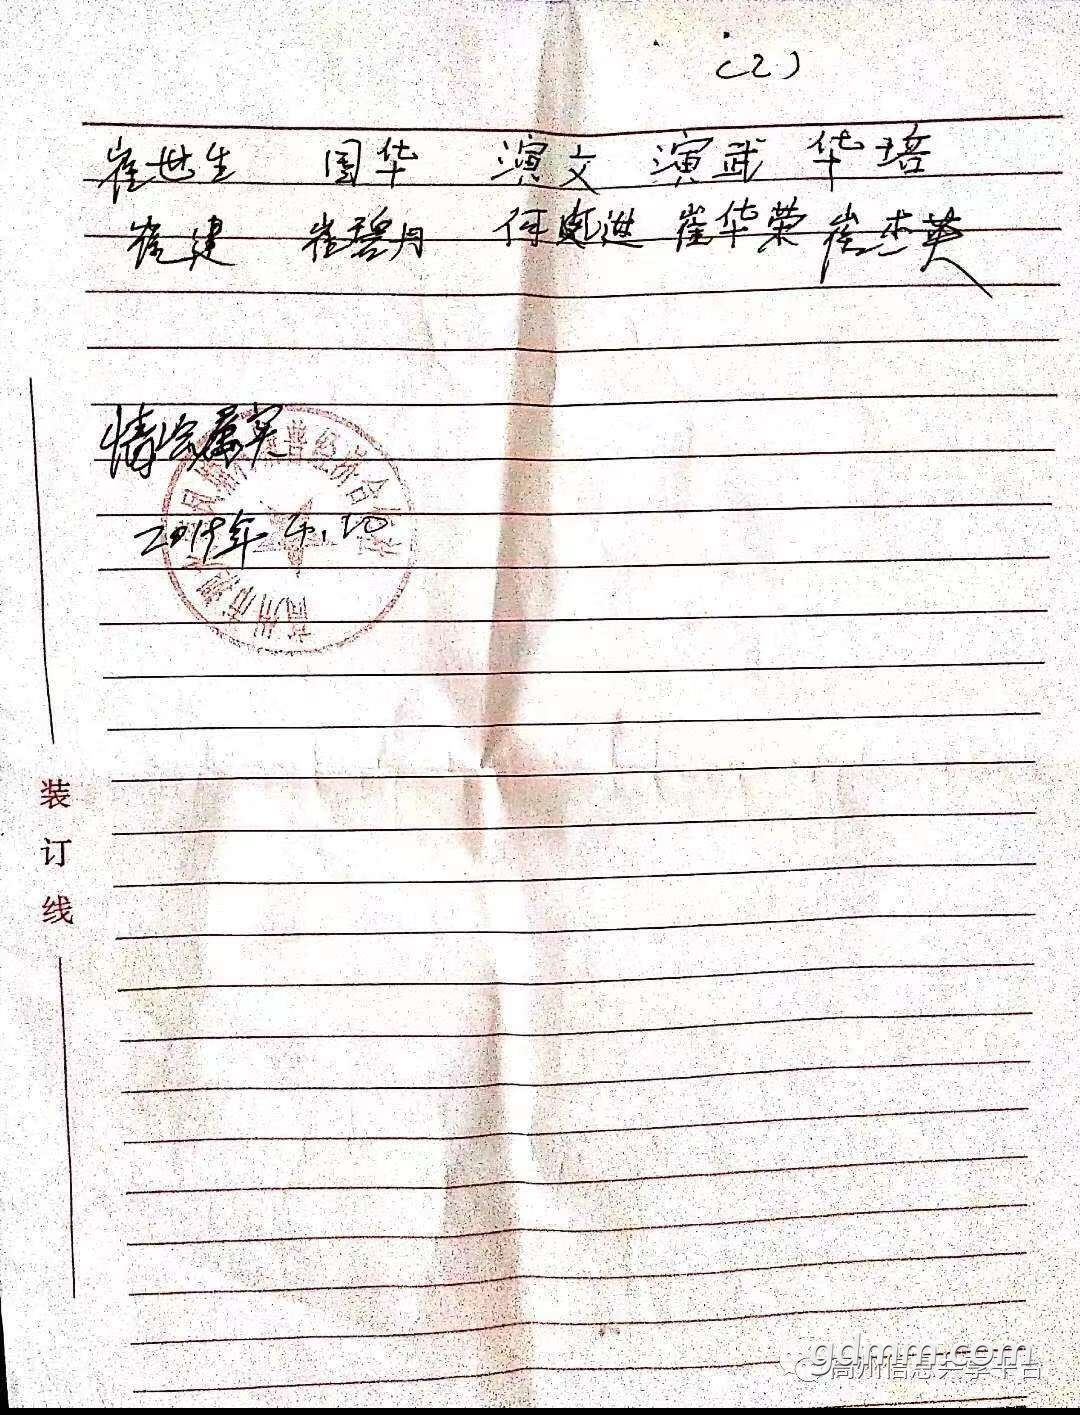 (2)
崔世生 国华 演文 演武 华培
崔建 崔碧月 何 进 崔华荣 崔杰英
情况属实
2019年4.20
高州市 经济合
装
订
线
gdmm.com
高州信息共享平台